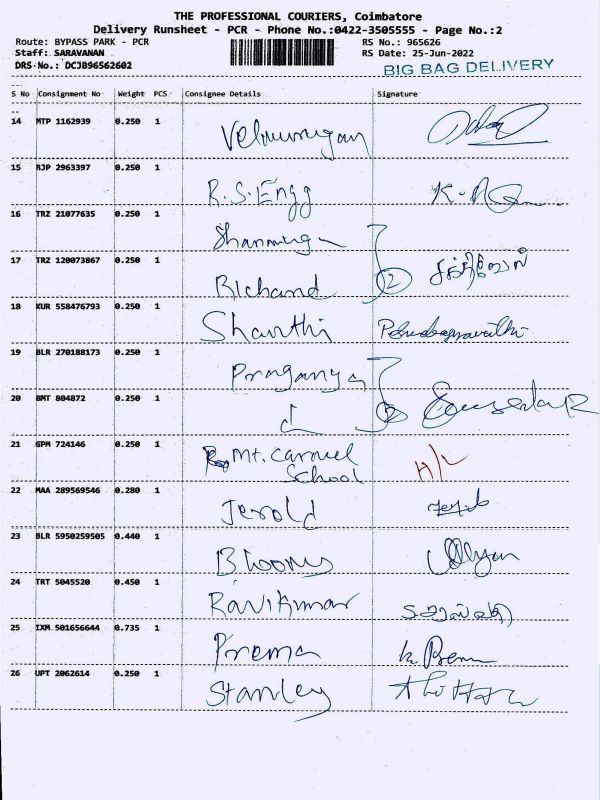 THE PROFESSIONAL COURIERS, Coimbatore
Delivery Runsheet - PCR - Phone No.:0422-3505555 - Page No.:2
Route: BYPASS PARK - PCR RS No.: 965626
Staff: SARAVANAN RS Date: 25-Jun-2022
DRS No.: DCJ896562602 BIG BAG DELIVERY
S No Consignment No Weight PCS Consignee Details Signature
14 MTP 1162939 0.250 1 Velmurugan
15 RJP 2963397 0.250 1 R.S.Engg
16 TRZ 21077635 0.250 1 Shanmuga
17 TRZ 120073867 0.250 1 Richand 2
18 KUR 558476793 0.250 1 Shanthi
19 BLR 270188173 0.250 1 Praganya
20 BMT 804872 0.250 1 2
21 GPM 724146 0.250 1 Mt. Carmel
School H/L
22 MAA 289569546 0.280 1 Jerold
23 BLR 5950259505 0.440 1 Blooms
24 TRT 5045520 0.450 1 Ravikumar
25 IXM 501656644 0.735 1 Prema K. Prema
26 UPT 2062614 0.250 1 Stanley